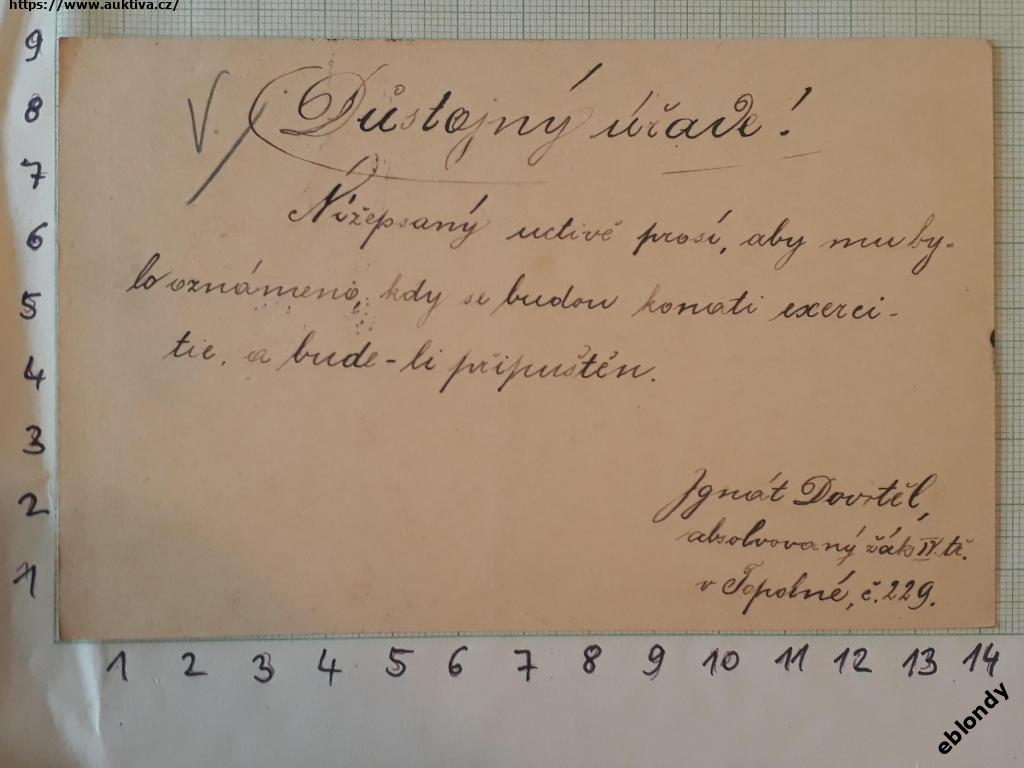 https://www.auktiva.cz/
V. Důstojný úřade!
Nížepsaný uctivě prosí, aby mu by-
lo oznámeno, kdy se budou konati exerci-
tie, a bude-li připuštěn.
Ignát Dovrtěl,
absolvovaný žák IV. tř.
v Topolné, č. 229.
9
8
7
6
5
4
3
2
1
1 2 3 4 5 6 7 8 9 10 11 12 13 14
eblondy